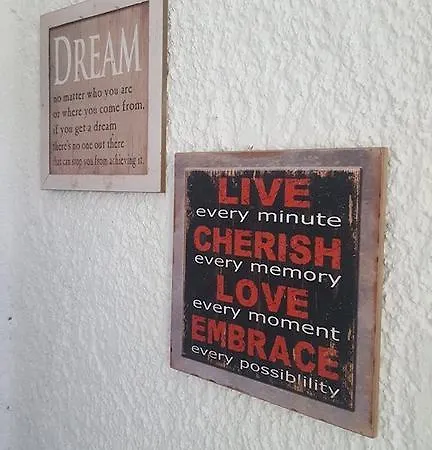 DREAM
no matter who you are
or where you come from,
if you get a dream
there's no one out there
that can stop you from achieving it.
LIVE
every minute
CHERISH
every memory
LOVE
every moment
EMBRACE
every possiblility